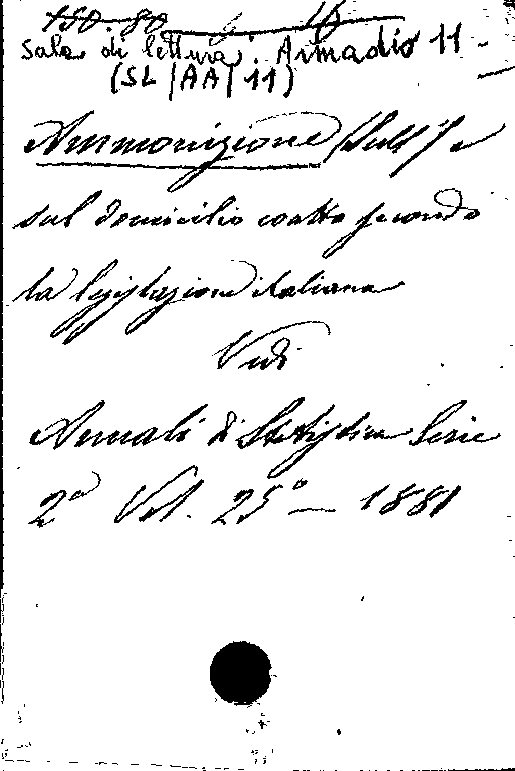 150 80 16
Sala di lettura: Armadio 11
(SL|AA|11)
Ammonizione (Sull') e
sul domicilio coatto secondo
la legislazione italiana
Vedi
Annali di Statistica Serie
2ª Vol. 25° — 1881